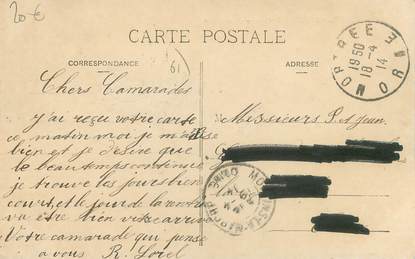 20 €
CARTE POSTALE
CORRESPONDANCE
ADRESSE
61
MORTRÉE
ORNE
1950
18-4
14
Chers Camarades
j'ai reçu votre carte
ce matin moi je m'amuse
bien et je désire que
le beau temps continue
je trouve les jours bien
court, et le jour de la rentrée
va être bien vite arrivé
Votre camarade qui pense
à vous R. Lorel
Messieurs P. et Jean